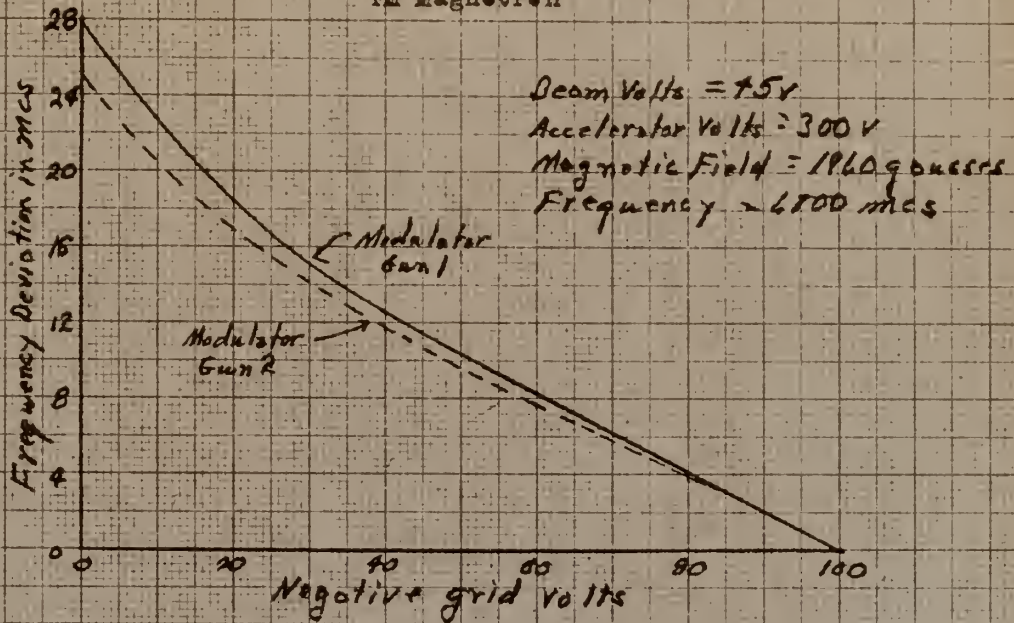 Magnetron
28
24
20
16
12
8
4
0
Frequency Deviation in mcs
Beam Volts = 45v
Accelerator Volts = 300 v
Magnetic Field = 1960 gausses
Frequency = mcs
Modulator
Gun 1
Modulator
Gun 2
0 20 40 60 80 100
Negative grid volts